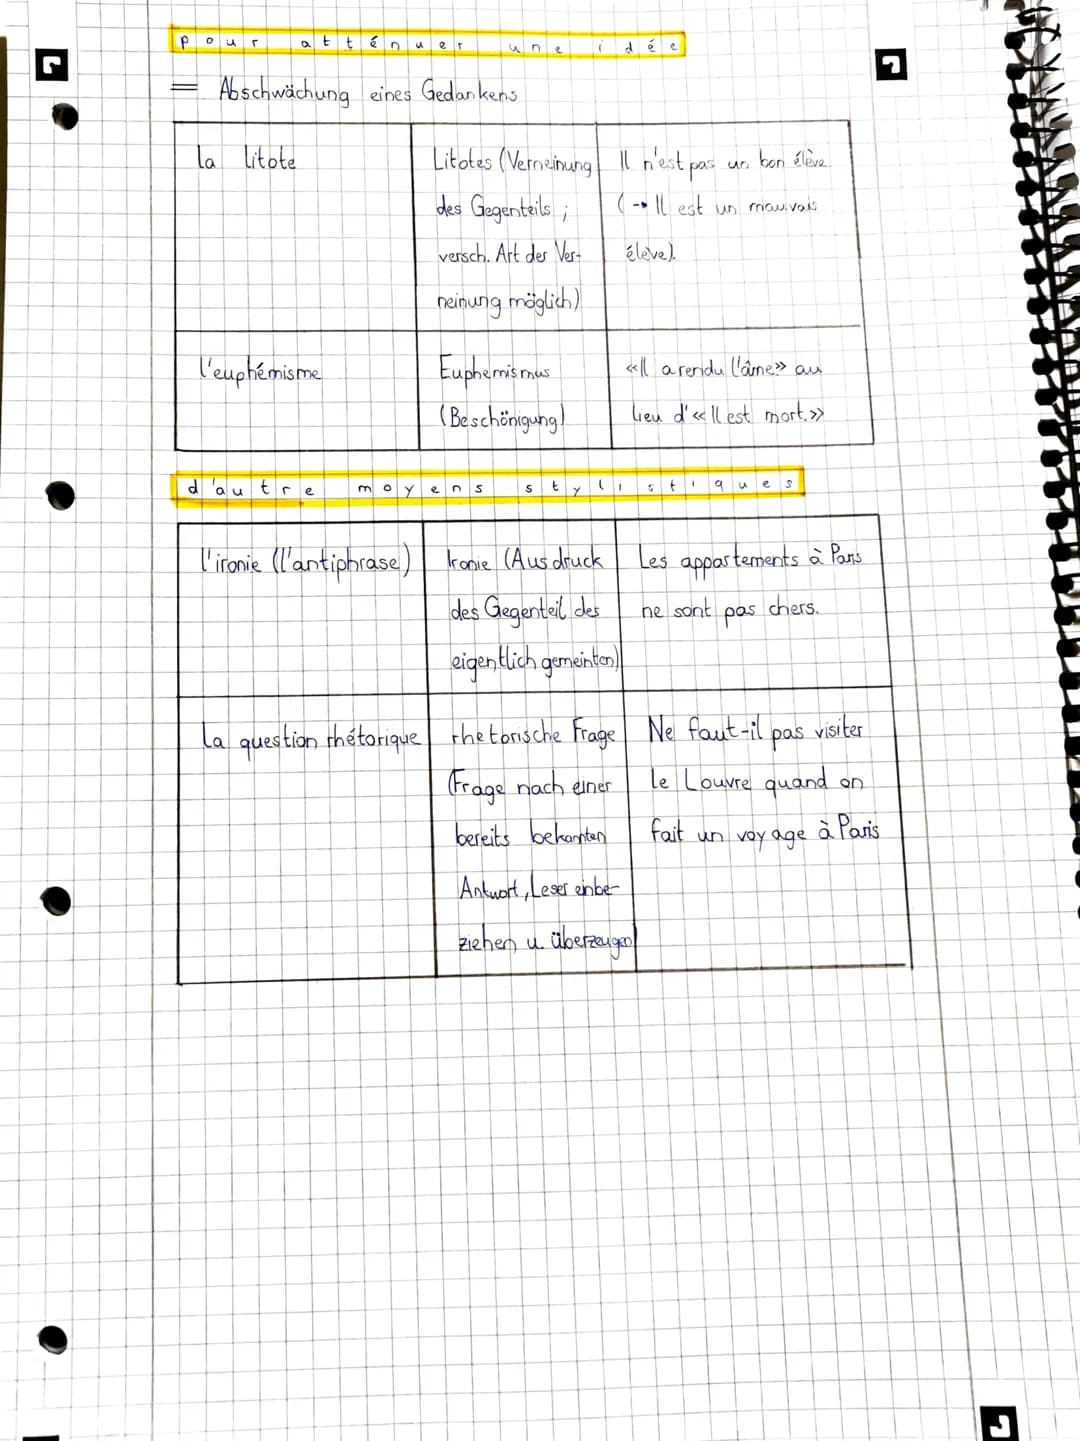 pour atténuer une idée
= Abschwächung eines Gedankens
la litote
Litotes (Verneinung
des Gegenteils ;
versch. Art der Ver-
neinung möglich)
Il n'est pas un bon élève
(→ Il est un mauvais
élève).
l'euphémisme
Euphemismus
(Beschönigung)
«Il a rendu l'âme» au
lieu d'«Il est mort.»
d'autre moyens stylistiques
l'ironie (l'antiphrase)
Ironie (Ausdruck
des Gegenteil des
eigentlich gemeinten)
Les appartements à Paris
ne sont pas chers.
la question rhétorique
rhetorische Frage
(Frage nach einer
bereits bekannten
Antwort, Leser einbe-
ziehen u. überzeugen
Ne faut-il pas visiter
le Louvre quand on
fait un voyage à Paris